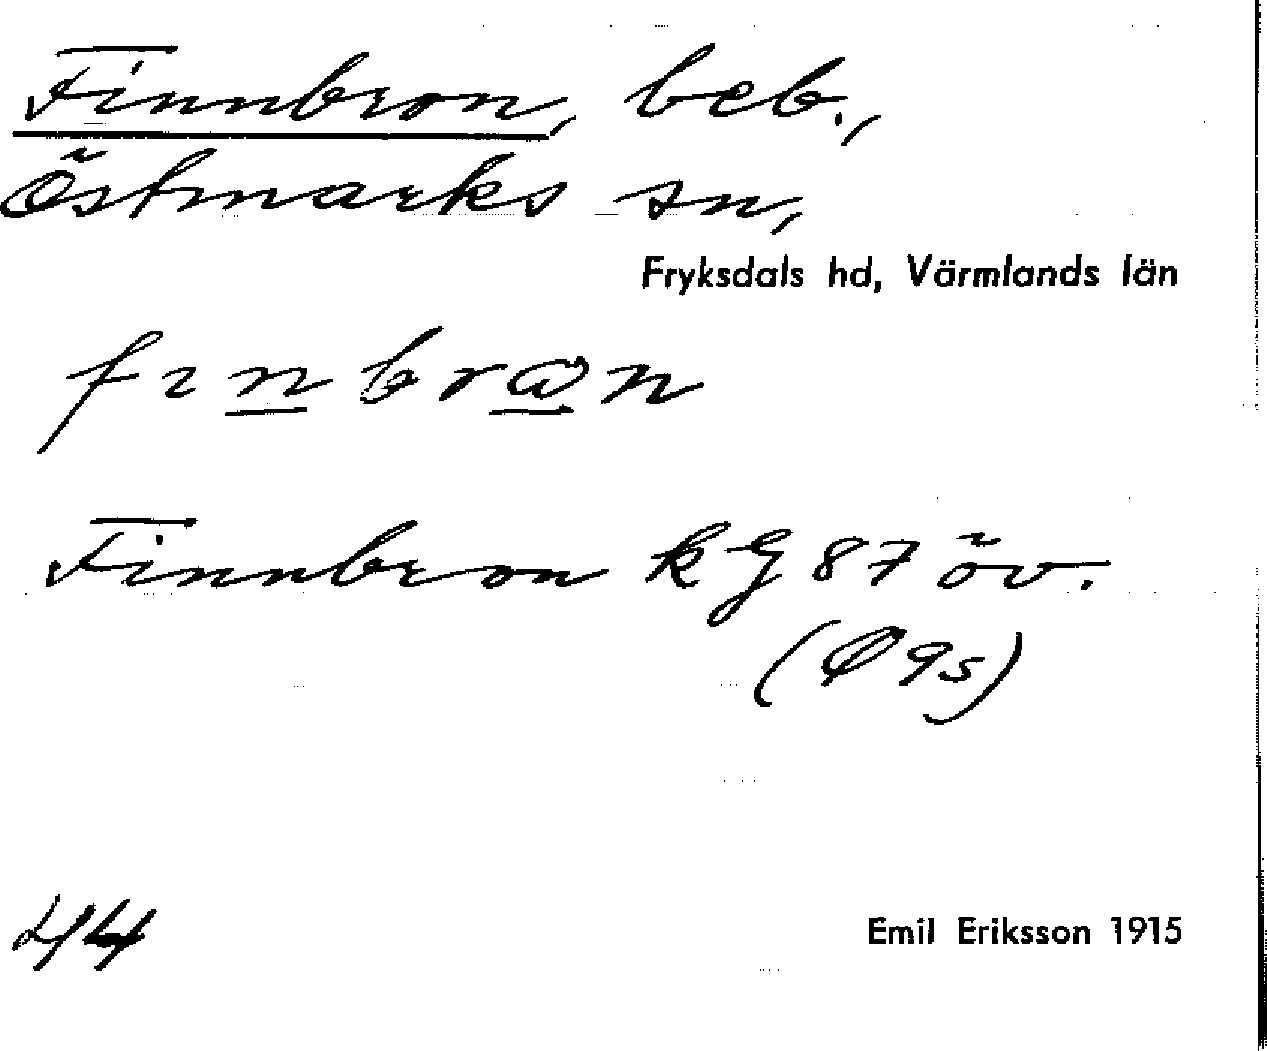 Finnbron, beb.,
Östmarks sn,
Fryksdals hd, Värmlands län
fɪnbrɷn
Finnbron kG 87 öv.
(Ø 9s)
44
Emil Eriksson 1915